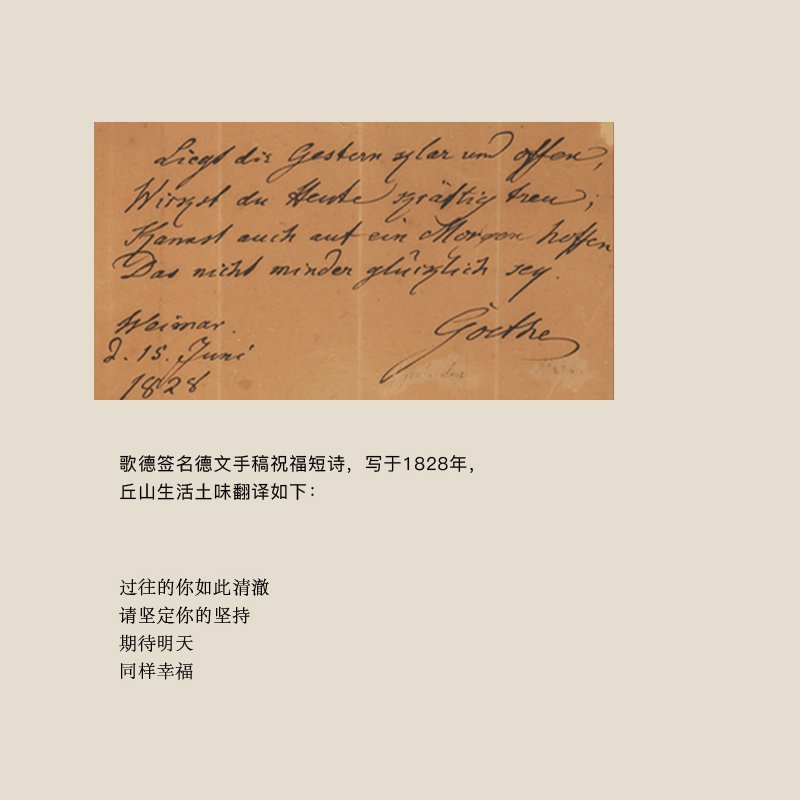 Liegt dir Gestern klar und offen,
Wirkst du Heute kräftig treu;
Kannst auch auf ein Morgen hoffen
Das nicht minder glücklich sey.
Weimar.
d. 15. Juni
1828
Goethe
歌德签名德文手稿祝福短诗，写于1828年，
丘山生活土味翻译如下：
过往的你如此清澈
请坚定你的坚持
期待明天
同样幸福